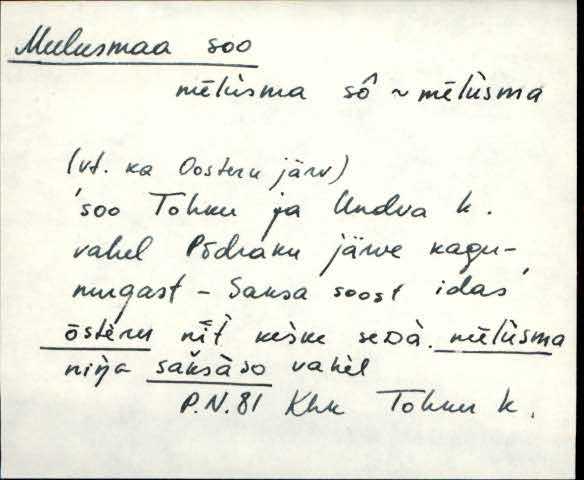 Meelusmaa soo
mēlùsma sô ~ mēlùsma
(vt. ka Oosteru järv)
'soo Tohku ja Undva k.
vahel Põdraku järve kagu-
nurgast – Saksa soost idas'
ōstèru nīt̆ keske seᴅà. mēlùsma
nińa saksàso vahèl
P.N. 81 Khk Tohku k.